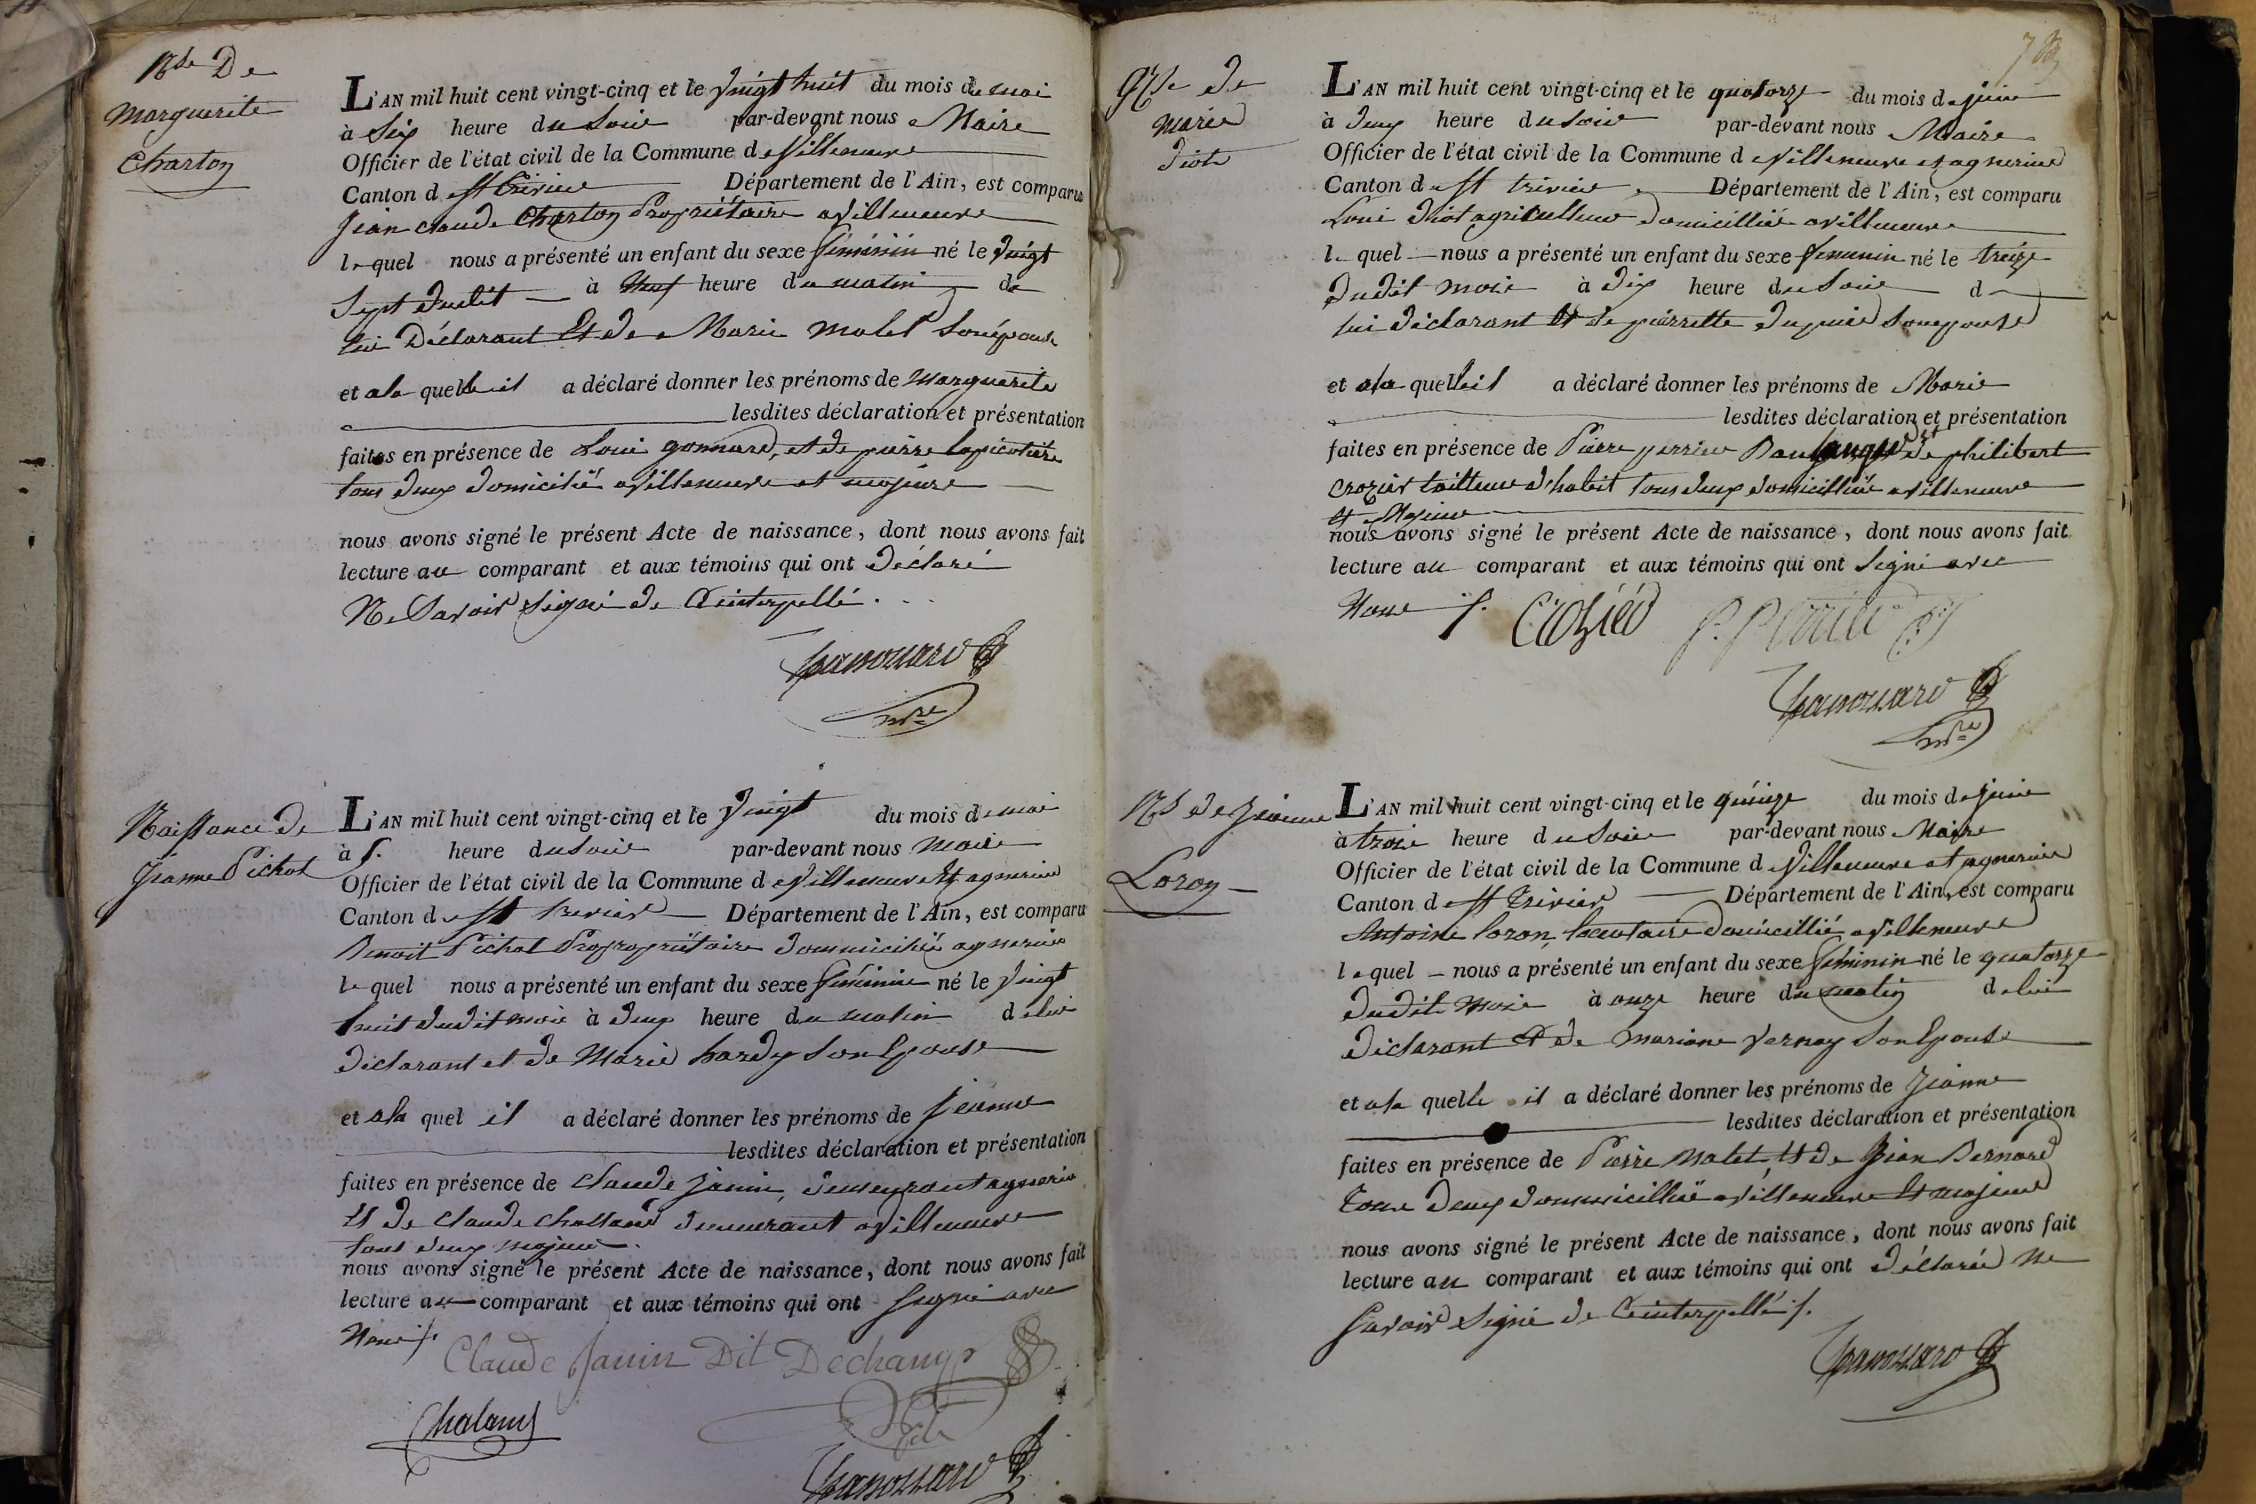 Nce De
Marguerite
Charton
L'AN mil huit cent vingt-cinq et le vingt huit du mois de mai
à Six heure du Soir par-devant nous Maire
Officier de l'état civil de la Commune de Villeneuve
Canton de St Trivier Département de l'Ain, est comparu
Jean claude Charton Propriétaire a villeneuve
lequel nous a présenté un enfant du sexe féminin né le vingt
Sept dudit à neuf heure du matin de
lui Déclarant Et de Marie molet Son épouse
et a la quelle il a déclaré donner les prénoms de Marguerite
lesdites déclaration et présentation
faites en présence de Loui gonnard, et de pierre lapicotière
tous deux domicilié a villeneuve et majeure
nous avons signé le présent Acte de naissance, dont nous avons fait
lecture au comparant et aux témoins qui ont Déclaré
Ne Savoir Signé de Ce interpellé.
mre
Naissance de
Jeanne Pichat
L'AN mil huit cent vingt-cinq et le vingt du mois de mai
à heure du soir par-devant nous maire
Officier de l'état civil de la Commune de Villeneuve Et agnerieu
Canton de St trivier Département de l'Ain, est comparu
Benoit Pichat Propropriétaire dommicilié agnerieu
lequel nous a présenté un enfant du sexe féminin né le vingt
huit dudit mois à deux heure du matin de lui
déclarant et de Marie hardy Son Epouse
et a la quel il a déclaré donner les prénoms de jeanne
lesdites déclaration et présentation
faites en présence de Claude Janin, demeurant agnerieu
Et de Claude challand demeurant a villeneuve
tous deux majeur.
nous avons signé le présent Acte de naissance, dont nous avons fait
lecture au comparant et aux témoins qui ont Signé avec
Nous
Claude Janin Dit Dechamp
Chaland
Nce de
Marie
Diot
L'AN mil huit cent vingt-cinq et le quatorze du mois de juin
à deux heure du Soir par-devant nous Maire
Officier de l'état civil de la Commune de Villeneuve et agnerieu
Canton de St trivier Département de l'Ain, est comparu
Loui Diot agriculteur domicillié a villeneuve
lequel nous a présenté un enfant du sexe feminin né le treize
dudit mois à dix heure du Soir d
lui déclarant Et de pierrette dupuis Son epouse
et a la quelle il a déclaré donner les prénoms de Marie
lesdites déclaration et présentation
faites en présence de Pierre perrier Boulanger et de philibert
Crozier tailleur d'habit tous deux domicillié a villeneuve
et Majeur
nous avons signé le présent Acte de naissance, dont nous avons fait
lecture au comparant et aux témoins qui ont Signé avec
Nous
Crozier P. Perrier
mre
Nce de Jeanne
Loron
L'AN mil huit cent vingt-cinq et le quinze du mois de juin
à trois heure du Soir par-devant nous Maire
Officier de l'état civil de la Commune de Villeneuve et agnerieu
Canton de St Trivier Département de l'Ain, est comparu
Antoine loron, locataire domicillié a villeneuve
lequel nous a présenté un enfant du sexe féminin né le quatorze
dudit mois à onze heure du matin de lui
déclarant Et de mariane Vernay Son Epouse
et a la quelle il a déclaré donner les prénoms de Jeanne
lesdites déclaration et présentation
faites en présence de Pierre Malet, Et de Jean Bernard
tous deux dommicillié a villeneuve Et majeur
nous avons signé le présent Acte de naissance, dont nous avons fait
lecture au comparant et aux témoins qui ont déclaré ne
Savoir Signé de Ce interpellé